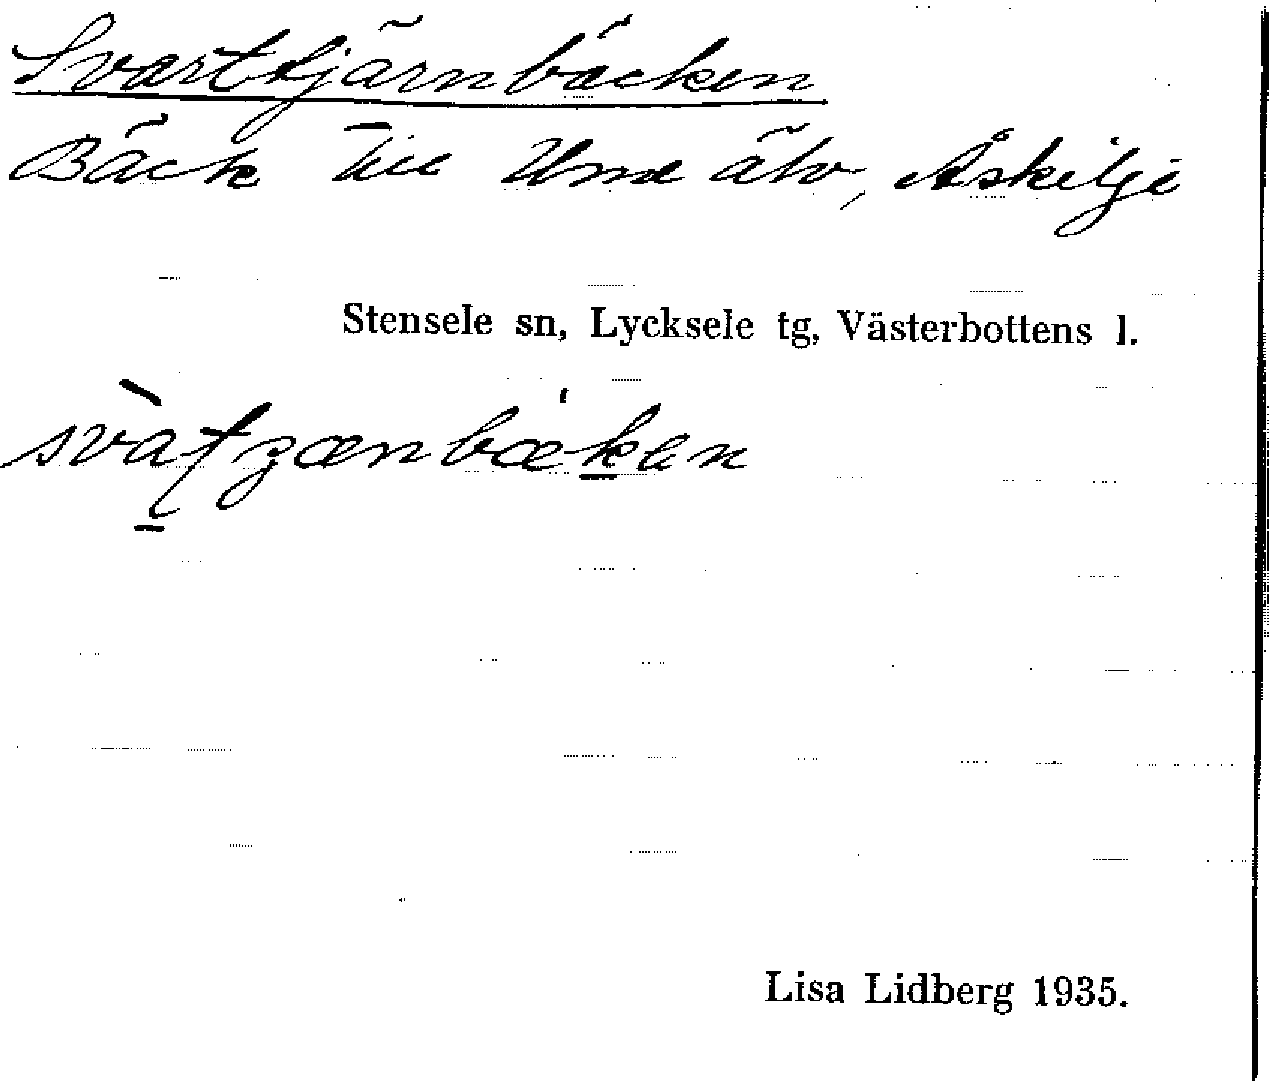 Svarttjärnbäcken
Bäck till Ume älv, Åskilje
Stensele sn, Lycksele tg, Västerbottens l.
Lisa Lidberg 1935.